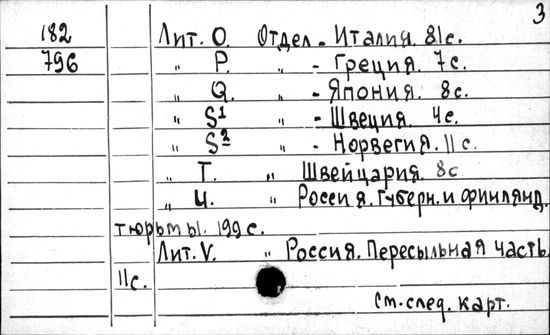 3
182 Лит. О. Отдел - Италия. 81 с.
796 " Р. " - Греция. 7 с.
" Q. " - Япония. 8 с.
" S1 " - Швеция. 4 с.
" S2 " - Норвегия. 11 с.
" Т. " Швейцария. 8 с
" Ч. " Россия. Губерн. и финлянд.
тюрьмы. 199 с.
Лит. V. " Россия. Пересыльная часть.
11 с.
см. след. карт.